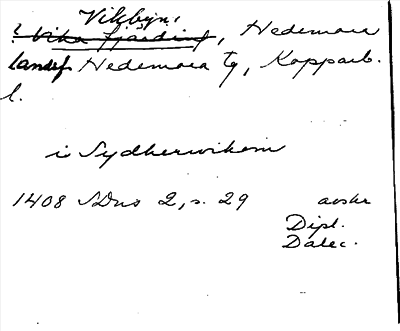 Vikbyn,
? Vika fjärding, Hedemora
landsf Hedemora tg, Kopparb.
l.
i Sydherwikom
1408 SDns 2, s. 29 avskr
Dipl.
Dalec.